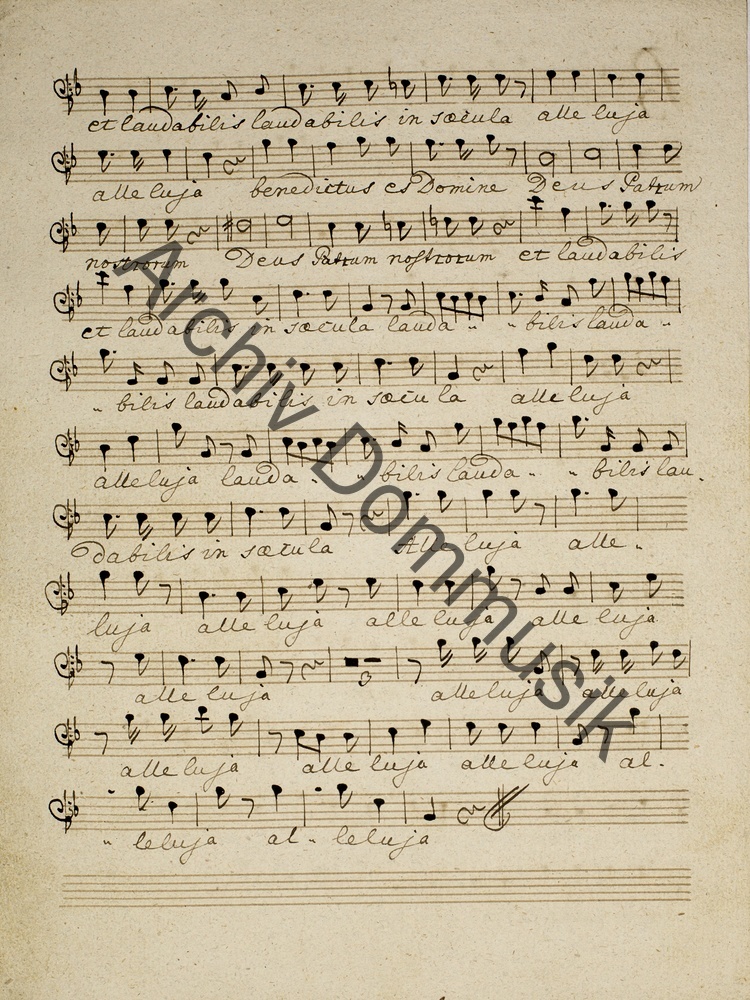 et laudabilis laudabilis in sæcula alleluja
alleluja benedictus es Domine Deus Patrum
nostrorum Deus Patrum nostrorum et laudabilis
et laudabilis in sæcula lauda " " bilis lauda "
" bilis laudabilis in sæcula alleluja
alleluja lauda " " bilis lauda " " bilis lau-
dabilis in sæcula Alleluja alle-
luja alleluja alleluja alleluja
alleluja 3 alleluja alleluja
alleluja alleluja alleluja al-
" leluja al- leluja
Archiv Dommusik